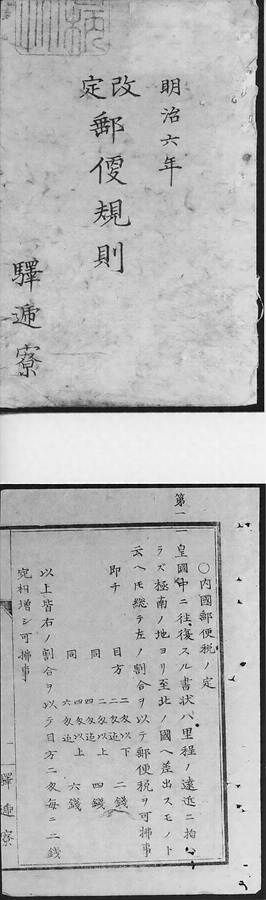 明治六年
改定
郵便規則
驛逓寮
第一
○內國郵便税ノ定
皇國中ニ往復スル書状ハ里程ノ遠近ニ拘ハ
ラズ極南ノ地ヨリ至北ノ國ヘ差出スモノト
云ヘ𪜈總テ左ノ割合ヲ以テ郵便税ヲ可拂事
即チ 目方 二匁以下 二錢
同 二匁以上 四匁迄 四錢
同 四匁以上 六匁迄 六錢
以上皆右ノ割合ヲ以テ目方二匁每ニ二錢
宛相増シ可拂事
驛逓寮